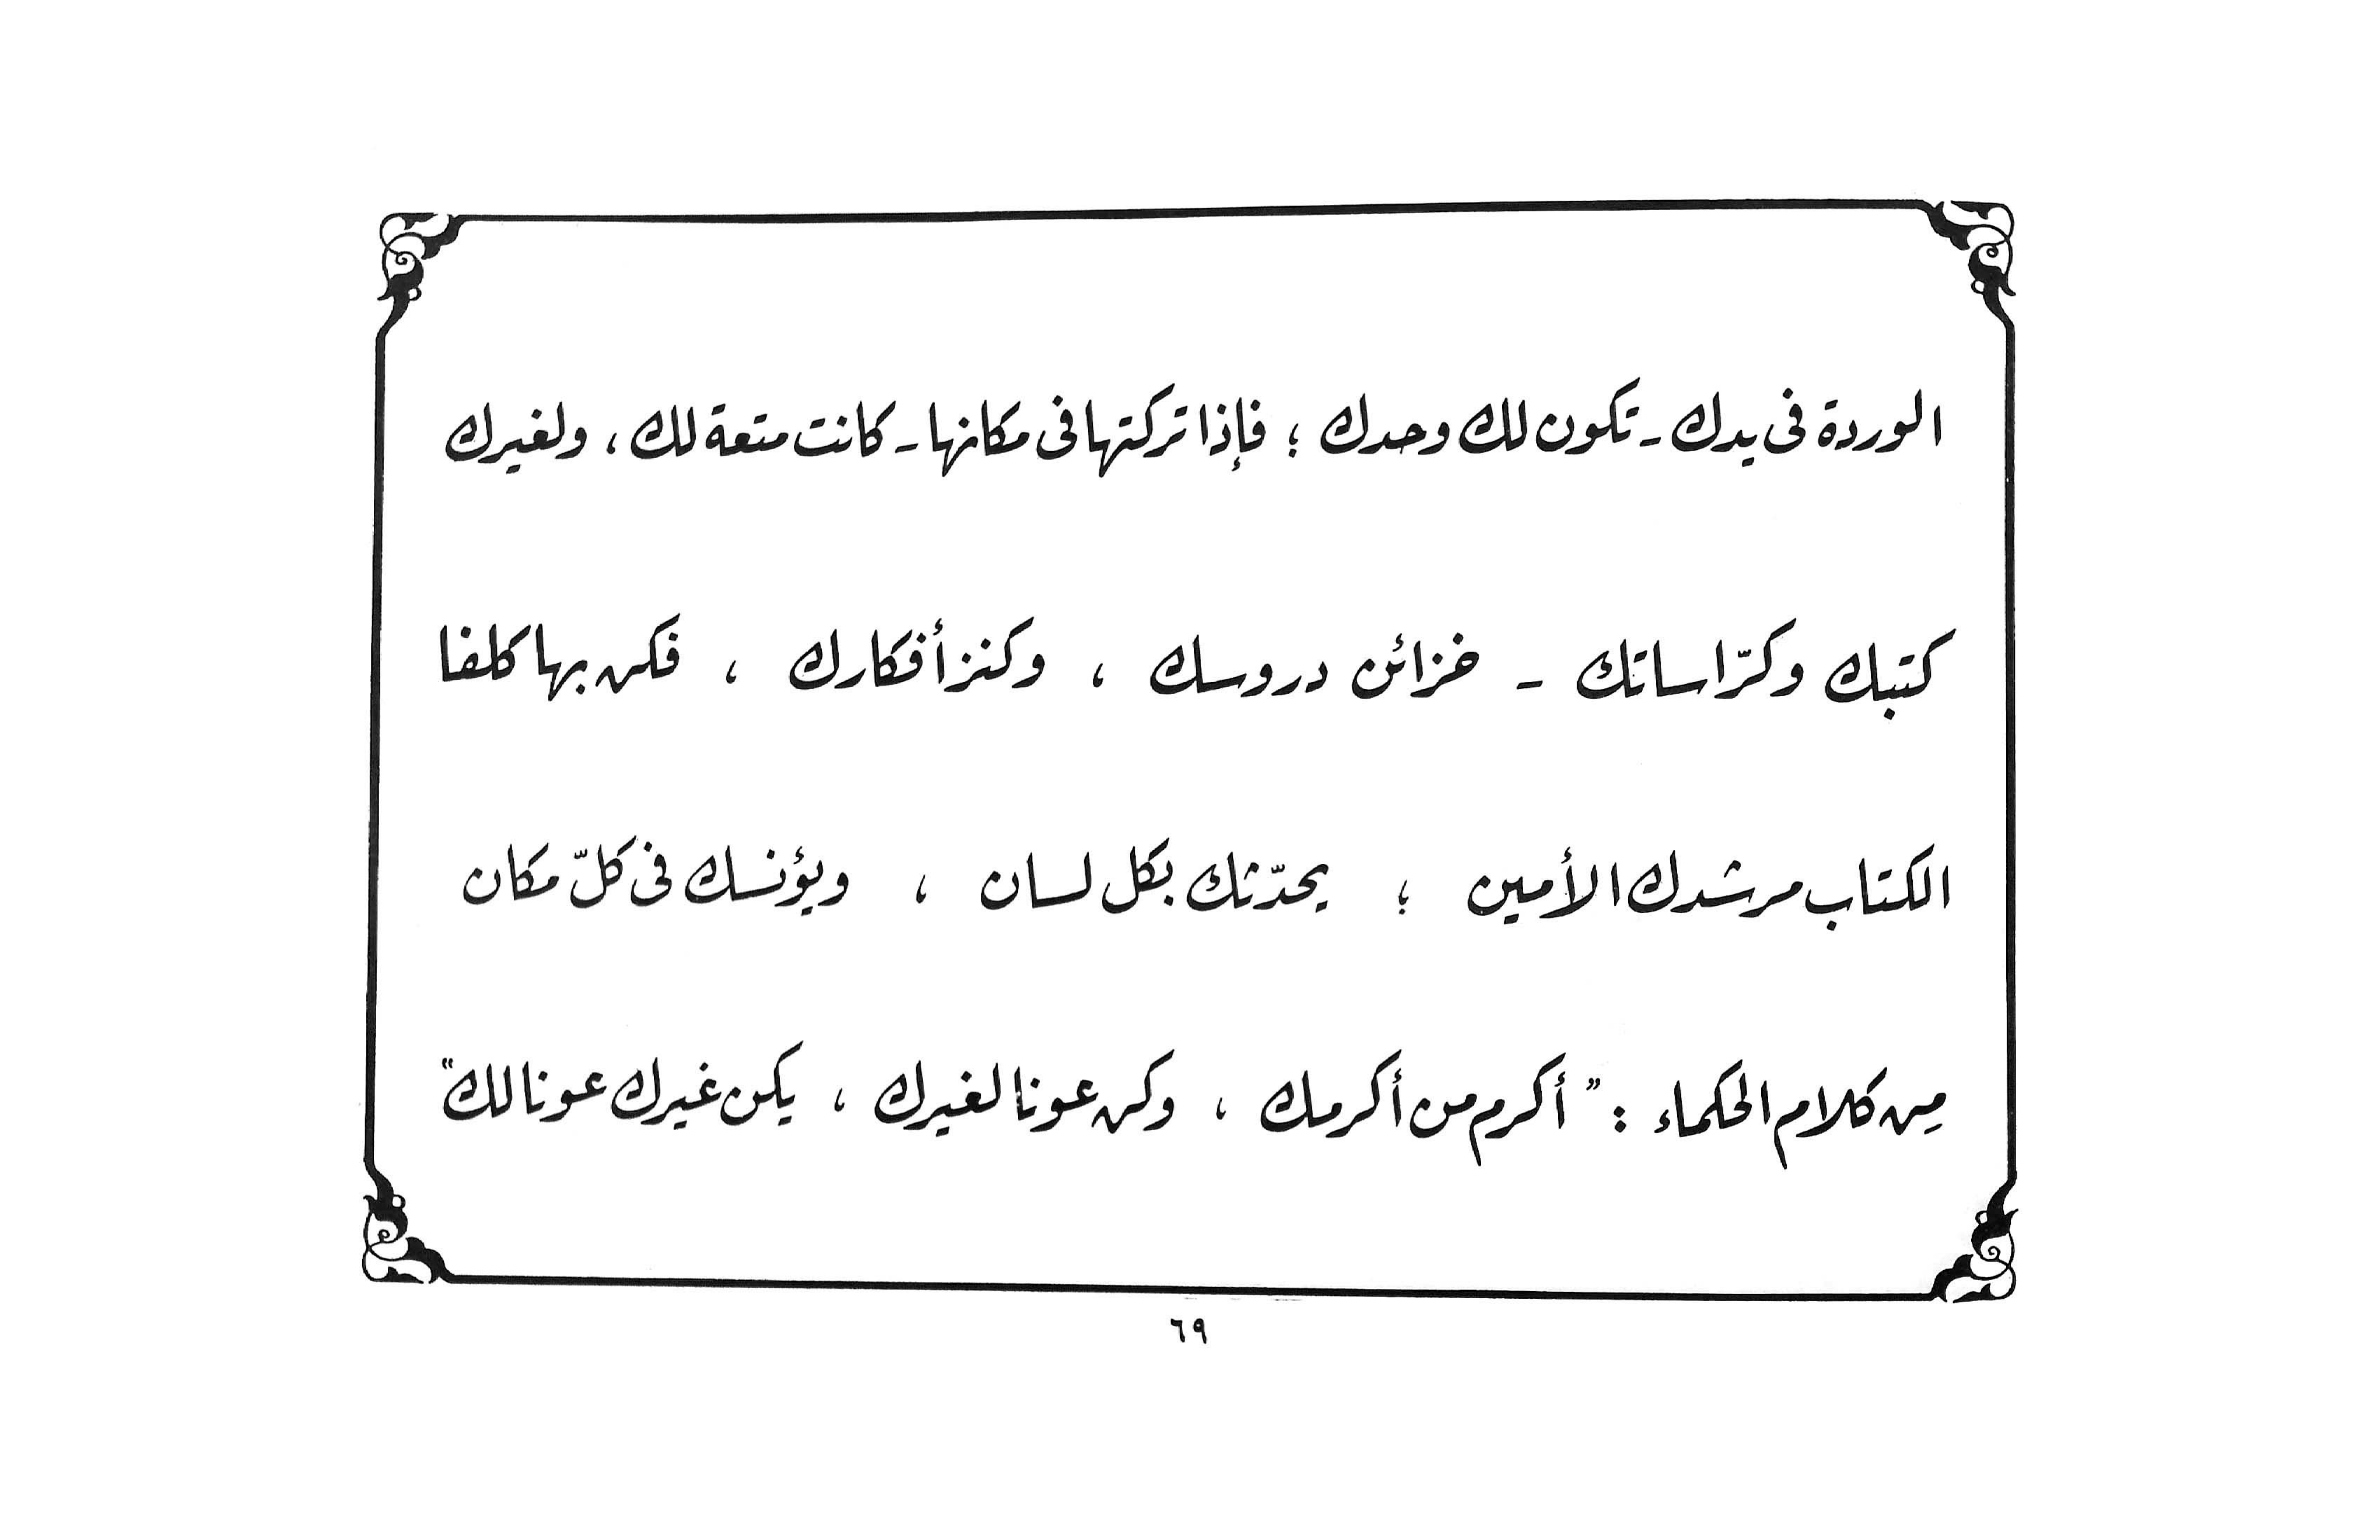 الوردة فى يدك ـ تكون لك وحدك ؛ فإذا تركتها فى مكانها ـ كانت متعة لك ، ولغيرك
كتبك وكرّاساتك ـ خزائن دروسك ، وكنز أفكارك ، فكن بها كلفا
الكتاب مرشدك الأمين ؛ يحدّثك بكل لسان ، ويؤنسك فى كلّ مكان
مِن كلام الحكماء : " أكرم من أكرمك ، وكن عونا لغيرك ، يكن غيرك عونا لك "
٦٩